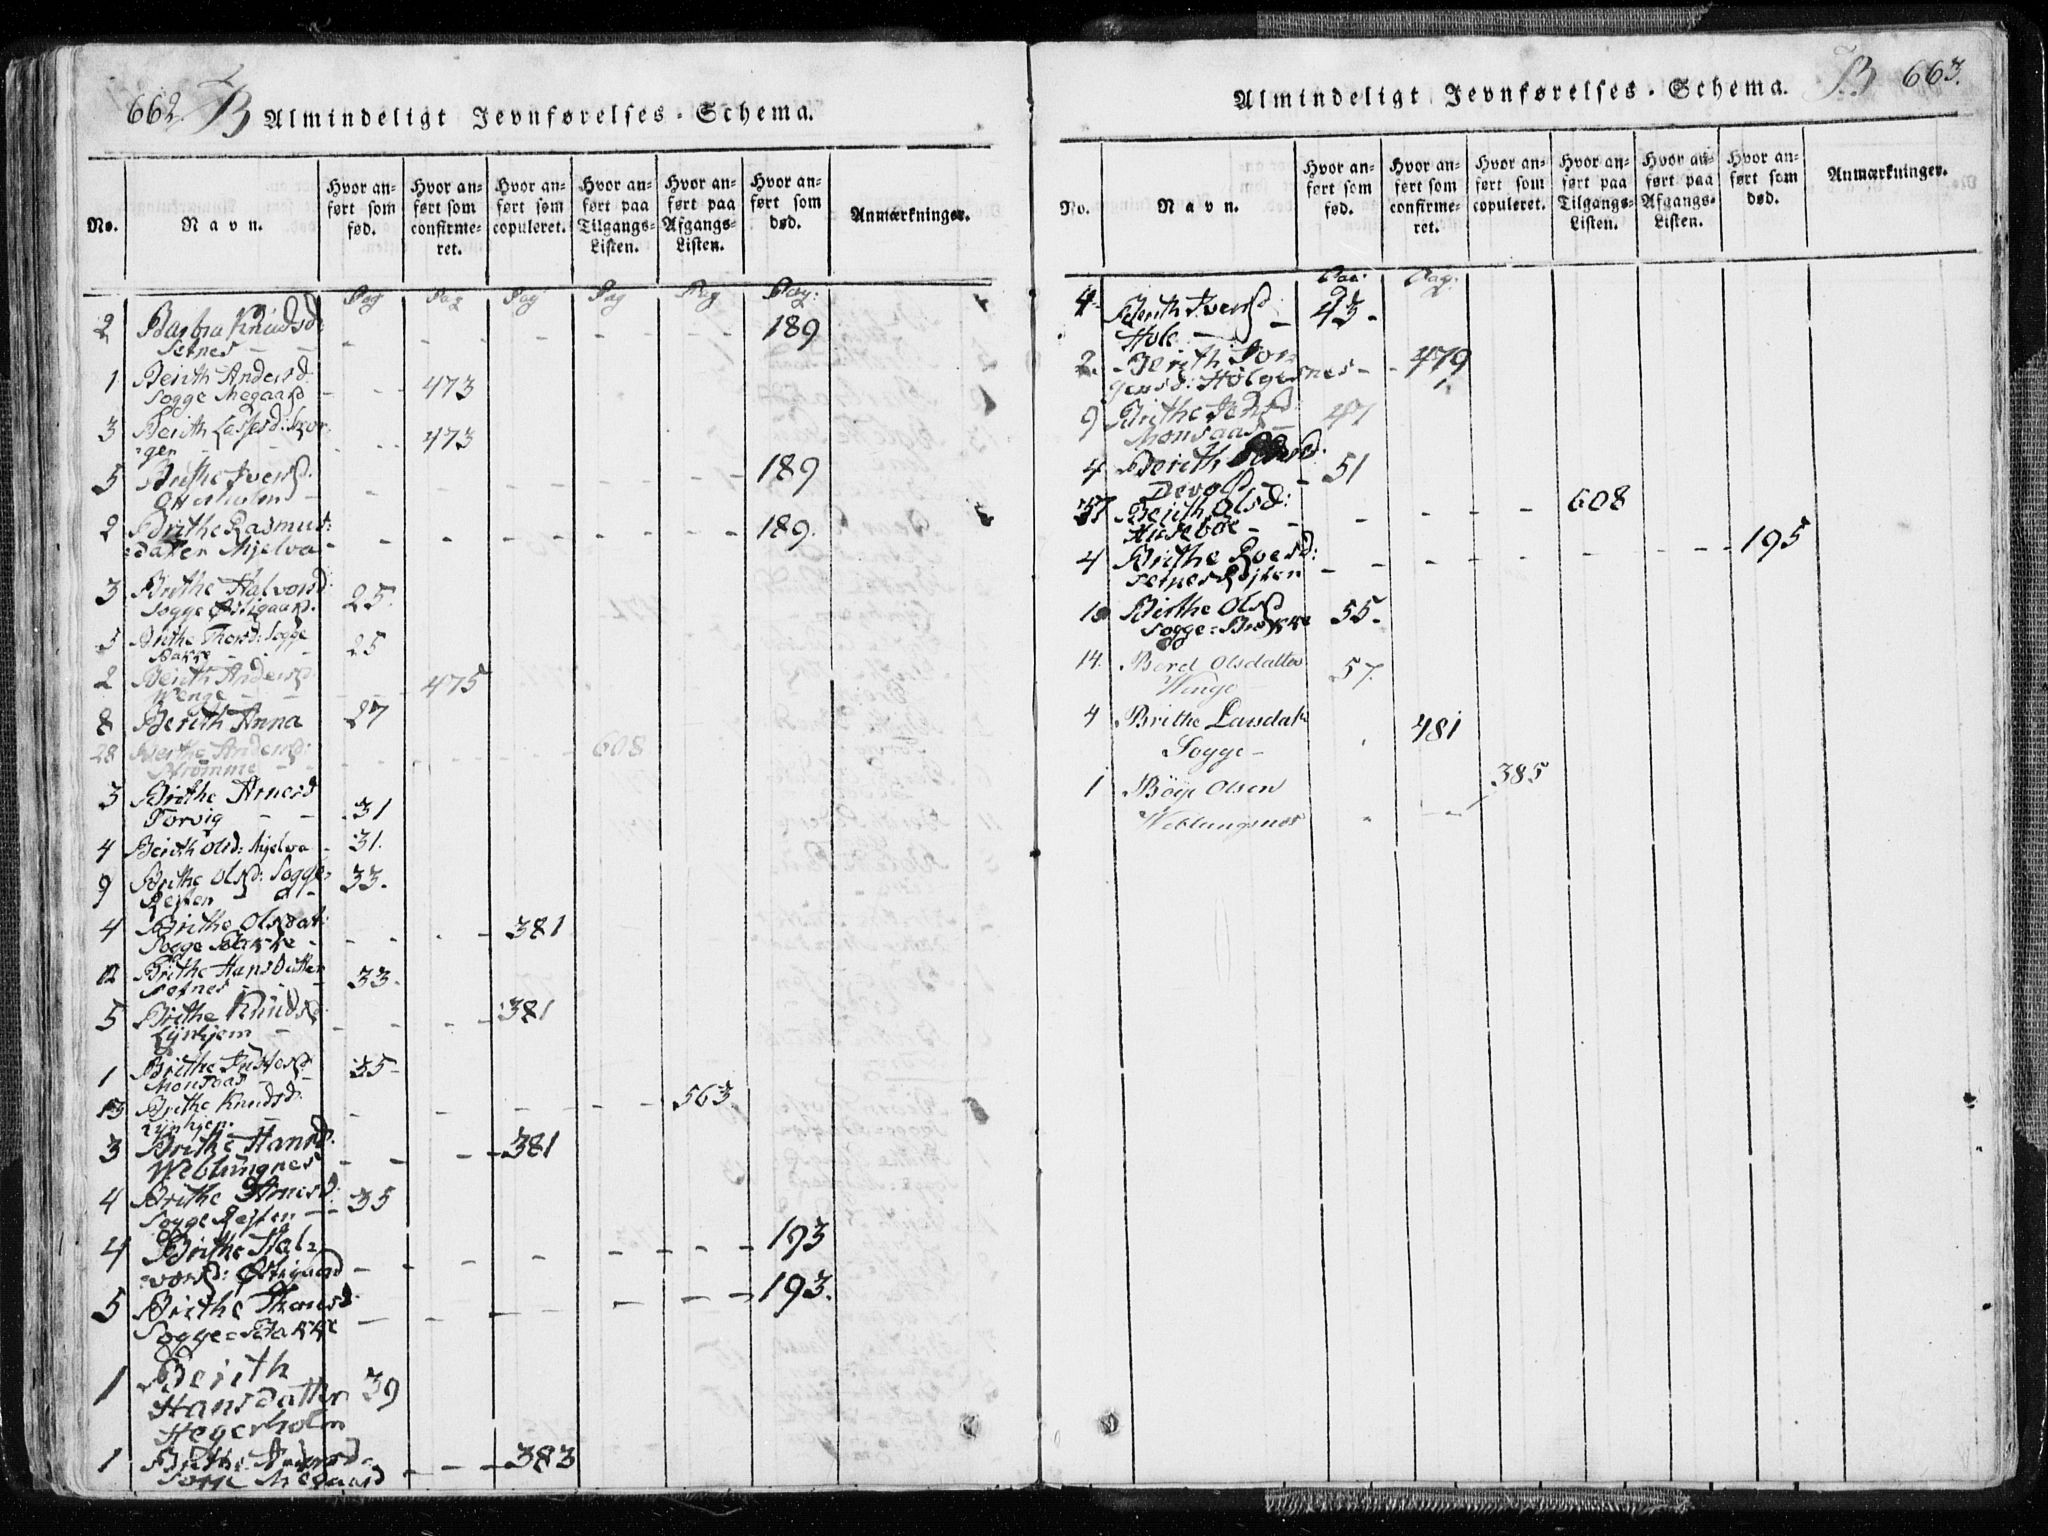 662. B Almindeligt Jevnførelses-Schema.
No. Navn. Hvor anført som fød. Hvor anført som confirmeret. Hvor anført som copuleret. Hvor anført paa Tilgangs-Listen. Hvor anført paa Afgangs-Listen. Hvor anført som død. Anmærkninger.
Pag Pag Pag Pag Pag Pag:
2 Barbra Knudsd: 189
Setnes
1 Berith Andersd: 473
Sogge Megaard
3 Berith 473
gen
5 Brithe Iversd: 189
Otterholm
2 Brithe Rasmus: 189.
datter Mjelva
3 Brithe Halvorsd: 25.
Sogge Østigaard.
5 Brithe Thorsd: Sogge 25
Bakke
2 Berith Andersd: 475
Wenge
8 Berith Anna 27
28 Berthe Andersd: 608
Strømme
3 Brithe Arnesd 31
Torvig
4 Berith Olsd: Mjelva 31.
9 Brithe Olsd: Sogge- 33.
Rejten
4 Brithe Olsdat: 381
Sogge Bakke
12 Brithe Hansdatter 33.
Setnes
5 Brithe Knudsd: 381
Lyrhjem
1 Brithe 35
Monsaas
13 Brithe Knudsd. 563
Lyrhjem.
3 Brithe Hansd: 381
Weblungnes
4 Brithe Arnesd: 35
Sogge Rejten
4 Brithe Hal= 193
vorsd: Østigaard
5 Brithe Thorsd: 193.
Sogge=Bakke
1 Berith 39
Hansdatter
Hegerholm
1 Brithe Andersd= 383
Sogge Megaard
Almindeligt Jevnførelses-Schema. B 663.
No. Navn. Hvor anført som fød. Hvor anført som confirmeret. Hvor anført som copuleret. Hvor anført paa Tilgangs-Listen. Hvor anført paa Afgangs-Listen. Hvor anført som død. Anmærkninger.
Pag: Pag.
4 Berith Iversd: 43.
Hole
2. Berith Jør= 479
gensd: Holgesnes
9 Brithe Jensd 47
Monsaas
4 Berith 51
Devold
37 Berith Olsd: 608
Husebøe
4 Brithe Roersd: 195
Setnes Rejten
10 Birthe Olsd 55.
Sogge=Bakke
14. Berel Olsdatter 57.
Winge
4 Brithe Larsdatr 481
Sogge
1 Böije Olsen 385
Weblungsnes